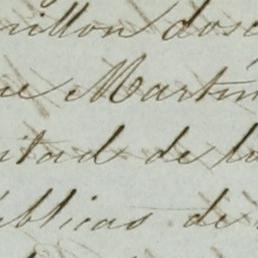 millon dosc
ue Martin
itad de lo
úblicas de